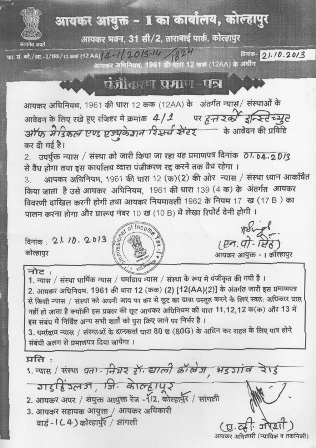 आयकर आयुक्त - I का कार्यालय, कोल्हापुर
आयकर भवन, 31 सी/2, ताराबाई पार्क, कोल्हापुर
दिनांक : 21.10.2013
आयकर अधिनियम, 1961 की धारा 12 कक (12AA) के अधीन
पंजीकरण प्रमाण-पत्र
आयकर अधिनियम, 1961 की धारा 12 कक (12AA) के अंतर्गत न्यास / संस्थाओं के
आवेदन के लिए रखे हुए रजिस्टर मे क्रमांक 4/1 पर
ऑफ मेडिकल एण्ड एज्युकेशन रिसर्च सेंटर के आवेदन की प्रविष्टि
कर दी गई है।
2. उपर्युक्त न्यास / संस्था को जारी किया जा रहा यह प्रमाणपत्र दिनांक 01.04.2013
से वैध होगा तथा इस कार्यालय द्वारा पंजीकरण रद्द करने तक वैध रहेगा ।
3. आयकर अधिनियम, 1961 की धारा 12 (क)(2) की ओर न्यास / संस्था ध्यान आकर्षित
किया जाता है उसे आयकर अधिनियम, 1961 की धारा 139 (4 क) के अंतर्गत आयकर
विवरणी दाखिल करनी होगी तथा आयकर नियमावली 1962 के नियम 17 (ख) का
पालन करना होगा और प्रारूप नंबर 10 ख (10 B) मे लेखा रिपोर्ट देनी होगी ।
दिनांक : 21.10.2013
कोल्हापुर
(एन.पी. सिंह)
आयकर आयुक्त -1 कोल्हापुर
नोट :
1. न्यास / संस्था धार्मिक न्यास / धर्मादाय न्यास / संस्था के रूप मे पंजीकृत की गयी है ।
2. आयकर अधिनियम, 1961 की धारा 12 कक (2) [12(AA)(2)] के अंतर्गत जारी इस प्रमाणपत्र
से किसी न्यास / संस्था को अपनी आय पर कर से छूट का दावा प्रस्तुत करने के लिए स्वतः अधिकार प्राप्त
नहीं हो जाता है क्योंकि इस प्रकार की छूट आयकर अधिनियम की धारा 11,12,12 क,क और 13 मे
इस संबंध मे निर्दिष्ट अन्य सभी शर्तों को पूरा किए जाने पर निर्भर है ।
3. धर्मादाय न्यास / संस्थाओं के दानकर्ता धारा 80 छ (80G) के अधीन कर राहत के लिए पात्र होने
संबंधी अलग से प्रमाणपत्र दिया जायेगा ।
प्रति :
1. न्यास / संस्था पता- नियर डॉ. घाली कॉलेज, भडगांव रोड
गडहिंग्लज, जि. कोल्हापूर
2. आयकर अपर / संयुक्त आयुक्त रेंज -1/2, कोल्हापुर / सांगली
3. आयकर सहायक आयुक्त / आयकर अधिकारी
वार्ड-1(4) कोल्हापुर / सांगली